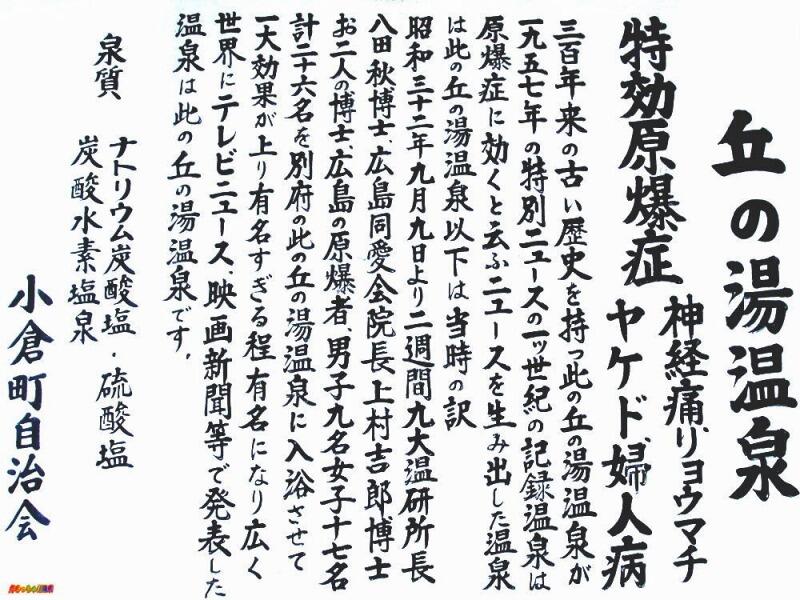 丘の湯温泉
特効原爆症
神経痛、リョウマチ
ヤケド、婦人病
三百年来の古い歴史を持つ此の丘の湯温泉が
一九五七年の特別ニュースの一ッ世紀の記録温泉は
原爆症に効くと云ふニュースを生み出した温泉
は此の丘の湯温泉以下は当時の訳
昭和三十二年九月九日より二週間九大温研所長
八田秋博士、広島同愛会院長上村吉郎博士
お二人の博士、広島の原爆者、男子九名女子十七名
計二十六名を別府の此の丘の湯温泉に入浴させて
一大効果が上り有名すぎる程有名になり広く
世界にテレビニュース、映画新聞等で発表した
温泉は此の丘の湯温泉です。
泉質
ナトリウム炭酸塩・硫酸塩
炭酸水素塩泉
小倉町自治会